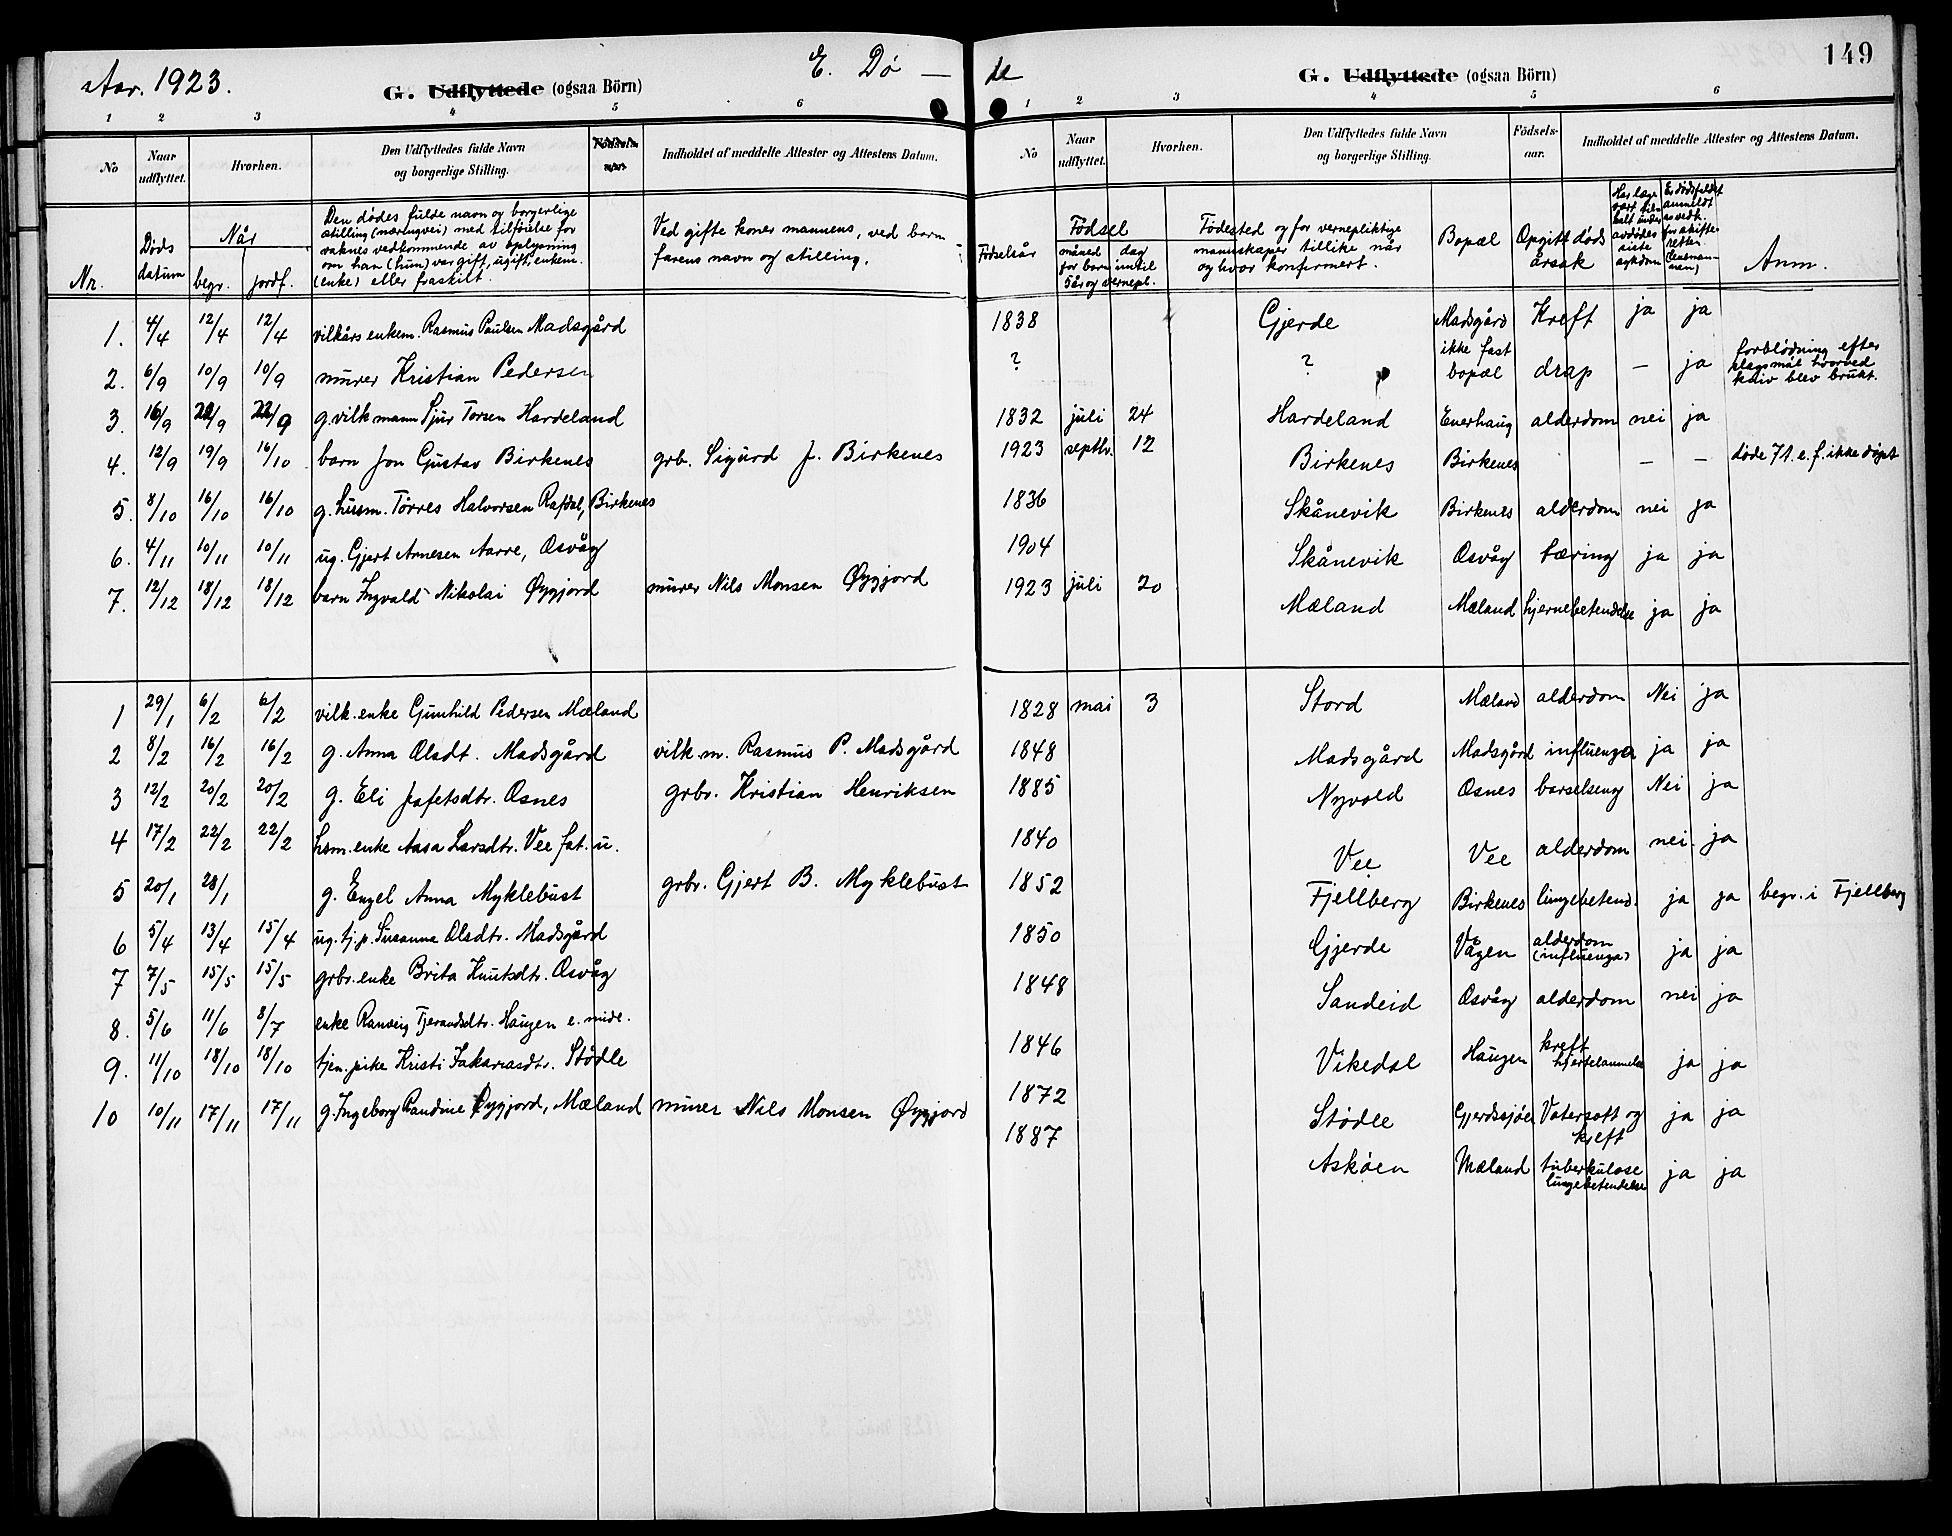 Aar. 1923.
E. Dø — de
149
G. Udflyttede (ogsaa Börn)
G. Udflyttede (ogsaa Börn)
1 2 3 4 5 6
1 2 3 4 5 6
No
Naar udflyttet.
Hvorhen.
Den Udflyttedes fulde Navn og borgerlige Stilling.
Födselsaar.
Indholdet af meddelte Attester og Attestens Datum.
No
Naar udflyttet.
Hvorhen.
Den Udflyttedes fulde Navn og borgerlige Stilling.
Födselsaar.
Indholdet af meddelte Attester og Attestens Datum.
Nr.
Døds datum
Når
begr. jordf.
Den dødes fulde navn og borgerlige
stilling (næringsvei) med tilføielse for
voksnes vedkommende av oplysning
om han (hun) var gift, ugift, enkem.
(enke) eller fraskilt.
Ved gifte koner mannens, ved barn
farens navn og stilling.
Fødselsår
Fødsel
måned dag
for barn inntil
5 år og vernepl.
Fødested og for vernepliktige
mannskaper tillike når
og hvor konfirmert.
Bopæl
Opgitt døds årsak
Har læge vært tilkalt under avdødes siste sykdom
Er dødsfaldet anmeldt vedk. for skifteretten (lensmannen)
Anm.
1. 4/4 12/4 12/4 vilkårs enkem. Rasmus Paulsen Madsgård 1838 Gjerde Madsgård Kreft ja ja
2. 6/9 10/9 10/9 murer Kristian Pedersen ? ? ikke fast bopæl drap — ja forblødning efter slagsmål hvorved kniv blev brukt.
3. 16/9 22/9 22/9 g. vilkmann Sjur Torsen Hardeland 1832 juli 24 Hardeland Enerhaug alderdom nei ja
4. 12/9 19/9 16/10 barn Jon Gustav Birkenes grb. Sigurd J. Birkenes 1923 septbr. 12 Birkenes Birkenes — — døde 7 t. e. f. ikke døpt
5. 8/10 16/10 16/10 g. husm. Tørres Halvorsen Rafdal, Birkenes 1836 Skånevik Birkenes alderdom nei ja
6. 4/11 10/11 10/11 ug. Gjert Arnesen Aarre, Osvåg 1904 Skånevik Osvåg tæring ja ja
7. 12/12 18/12 18/12 barn Ingvald Nikolai Øygjord murer Nils Monsen Øygjord 1923 juli 20 Mæland Mæland hjernebetendelse ja ja
1 29/1 6/2 6/2 vilk. enke Gunhild Pedersen Mæland 1828 mai 3 Stord Mæland alderdom Nei ja
2 8/2 16/2 16/2 g. Anna Olsdt. Madsgård vilk. m. Rasmus P. Madsgård 1848 Madsgård Madsgård influenza ja ja
3 12/2 20/2 20/2 g. Eli Jafetsdtr. Osnes grbr. Kristian Henriksen 1885 Nyvold Osnes barselseng Nei ja
4 17/2 22/2 22/2 hsm. enke Aasa Larsdtr. Vee fat. u. 1840 Vee Vee alderdom nei ja
5 20/1 28/1 g. Engel Anna Myklebust grbr. Gjert B. Myklebust 1852 Fjellberg Birkenes lungebetend. ja ja begr. i Fjellberg
6 5/4 13/4 15/4 ug. tj. p. Susanna Olsdtr. Madsgård 1850 Gjerde Vågen alderdom (influenza) ja ja
7 7/5 15/5 15/5 grbr. enke Brita Knutsdtr. Osvåg 1848 Sandeid Osvåg alderdom nei ja
8. 5/6 11/6 8/7 enke Ranveig Tjerandsdtr. Haugen e. mide. 1846 Vikedal Haugen kreft hjertelammelse ja ja
9. 11/10 18/10 18/10 tjen. pike Kristi Sakariasdtr. Stødle 1872 Stødle Gjerdssjøen Vatersott og kreft ja ja
10 10/11 17/11 17/11 g. Ingeborg Randine Øygjord, Mæland murer Nils Monsen Øygjord 1887 Askøen Mæland tuberkuløse lungebetendelse ja ja